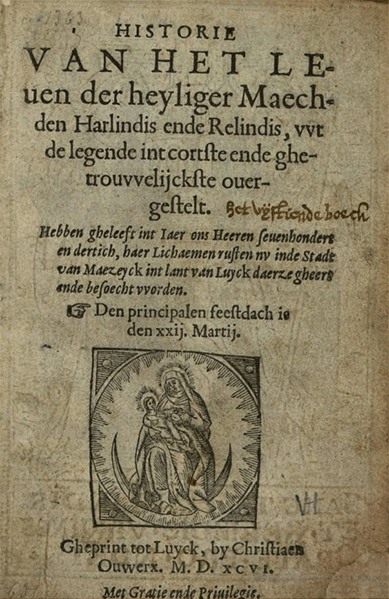 HISTORIE
VAN HET LE-
uen der heyliger Maech-
den Harlindis ende Relindis, vvt
de legende int cortste ende ghe-
trouvvelijckste ouer-
gestelt.
het vijftiende boeck
Hebben gheleeft int Iaer ons Heeren seuenhondert
en dertich, haer Lichaemen rusten nv inde Stadt
van Maezeyck int lant van Luyck daerze gheert
ende besocht vvorden.
☞ Den principalen feestdach is
den xxij. Martij.
VH
Gheprint tot Luyck, by Christiaen
Ouwerx. M. D. XCVI.
Met Gratie ende Priuilegie.